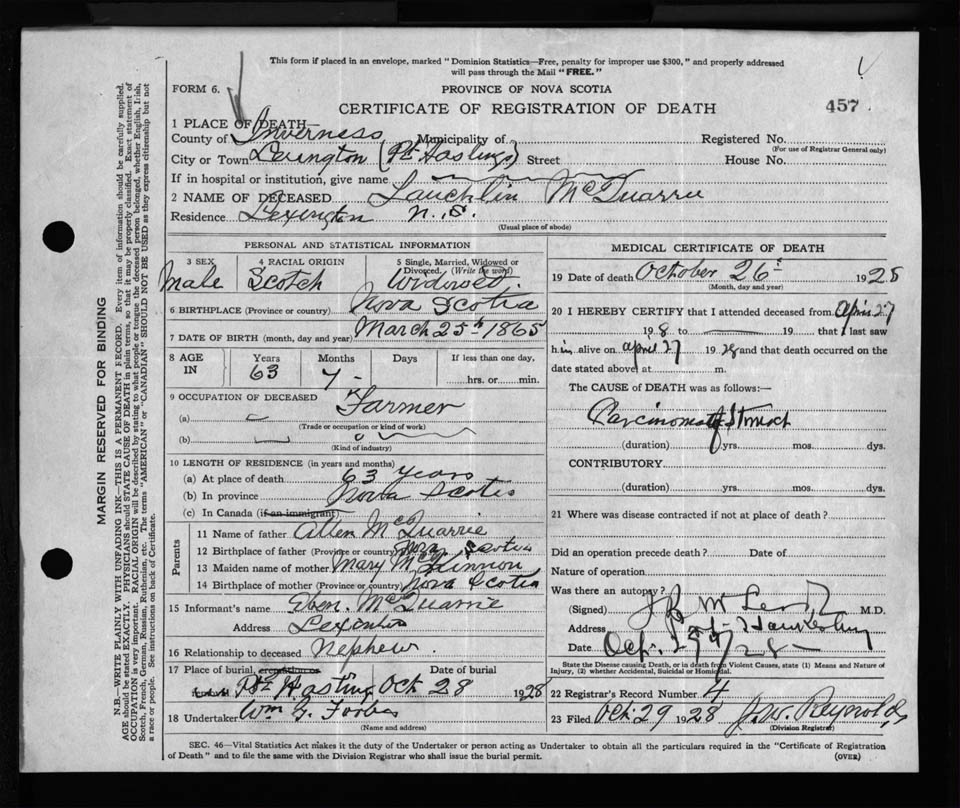 This form if placed in an envelope, marked "Dominion Statistics—Free, penalty for improper use $300," and properly addressed
will pass through the Mail "FREE."
FORM 6.
PROVINCE OF NOVA SCOTIA
CERTIFICATE OF REGISTRATION OF DEATH
457
1 PLACE OF DEATH—
County of Inverness Municipality of Registered No.
(For use of Registrar General only)
City or Town Lexington (Pt Hastings) Street House No.
If in hospital or institution, give name
2 NAME OF DECEASED Lauchlin McQuarrie
Residence Lexington N.S.
(Usual place of abode)
PERSONAL AND STATISTICAL INFORMATION
3 SEX 4 RACIAL ORIGIN 5 Single, Married, Widowed or Divorced. (Write the word)
Male Scotch Widowed.
6 BIRTHPLACE (Province or country) Nova Scotia
7 DATE OF BIRTH (month, day and year) March 25th 1865
8 AGE IN Years Months Days If less than one day,
63 7 - hrs. or min.
9 OCCUPATION OF DECEASED
(a) Farmer
(Trade or occupation or kind of work)
(b)
(Kind of industry)
10 LENGTH OF RESIDENCE (in years and months)
(a) At place of death 63 Years
(b) In province Nova Scotia
(c) In Canada (if an immigrant)
Parents
11 Name of father Allen McQuarrie
12 Birthplace of father (Province or country) Nova Scotia
13 Maiden name of mother Mary McKinnon
14 Birthplace of mother (Province or country) Nova Scotia
15 Informant's name Eben. McQuarrie
Address Lexington
16 Relationship to deceased Nephew.
17 Place of burial, cremation or Date of burial
Pt Hastings Oct 28 1928
18 Undertaker Wm G. Forbes
(Name and address)
MEDICAL CERTIFICATE OF DEATH
19 Date of death October 26th 1928
(Month, day and year)
20 I HEREBY CERTIFY that I attended deceased from April 27
198 to 19 that I last saw
him alive on april 27 1928 and that death occurred on the
date stated above at m.
The CAUSE OF DEATH was as follows:—
Carcinoma of Stomach
(duration) yrs. mos. dys.
CONTRIBUTORY
(duration) yrs. mos. dys.
21 Where was disease contracted if not at place of death?
Did an operation precede death? Date of
Nature of operation
Was there an autopsy?
(Signed) M.D.
Address Port Hawkesbury
Date Oct. 29/28
State the Disease causing Death, or in death from Violent Causes, state (1) Means and Nature of
Injury, (2) whether Accidental, Suicidal or Homicidal.
22 Registrar's Record Number 4
23 Filed Oct. 29 1928 J.W. Reynolds
(Division Registrar)
SEC. 46—Vital Statistics Act makes it the duty of the Undertaker or person acting as Undertaker to obtain all the particulars required in the "Certificate of Registration
of Death" and to file the same with the Division Registrar who shall issue the burial permit.
(OVER)
MARGIN RESERVED FOR BINDING
N.B.—WRITE PLAINLY WITH UNFADING INK—THIS IS A PERMANENT RECORD. Every item of information should be carefully supplied.
AGE should be stated EXACTLY. PHYSICIANS should STATE CAUSE OF DEATH in plain terms, so that it may be properly classified. Exact statement of
OCCUPATION is very important. RACIAL ORIGIN will be described by stating to what people or tongue the deceased person belonged, whether English, Irish,
Scotch, French, German, Russian, Ruthenian, etc. The terms "AMERICAN" or "CANADIAN" SHOULD NOT BE USED as they express citizenship but not
a race or people. See instructions on back of Certificate.